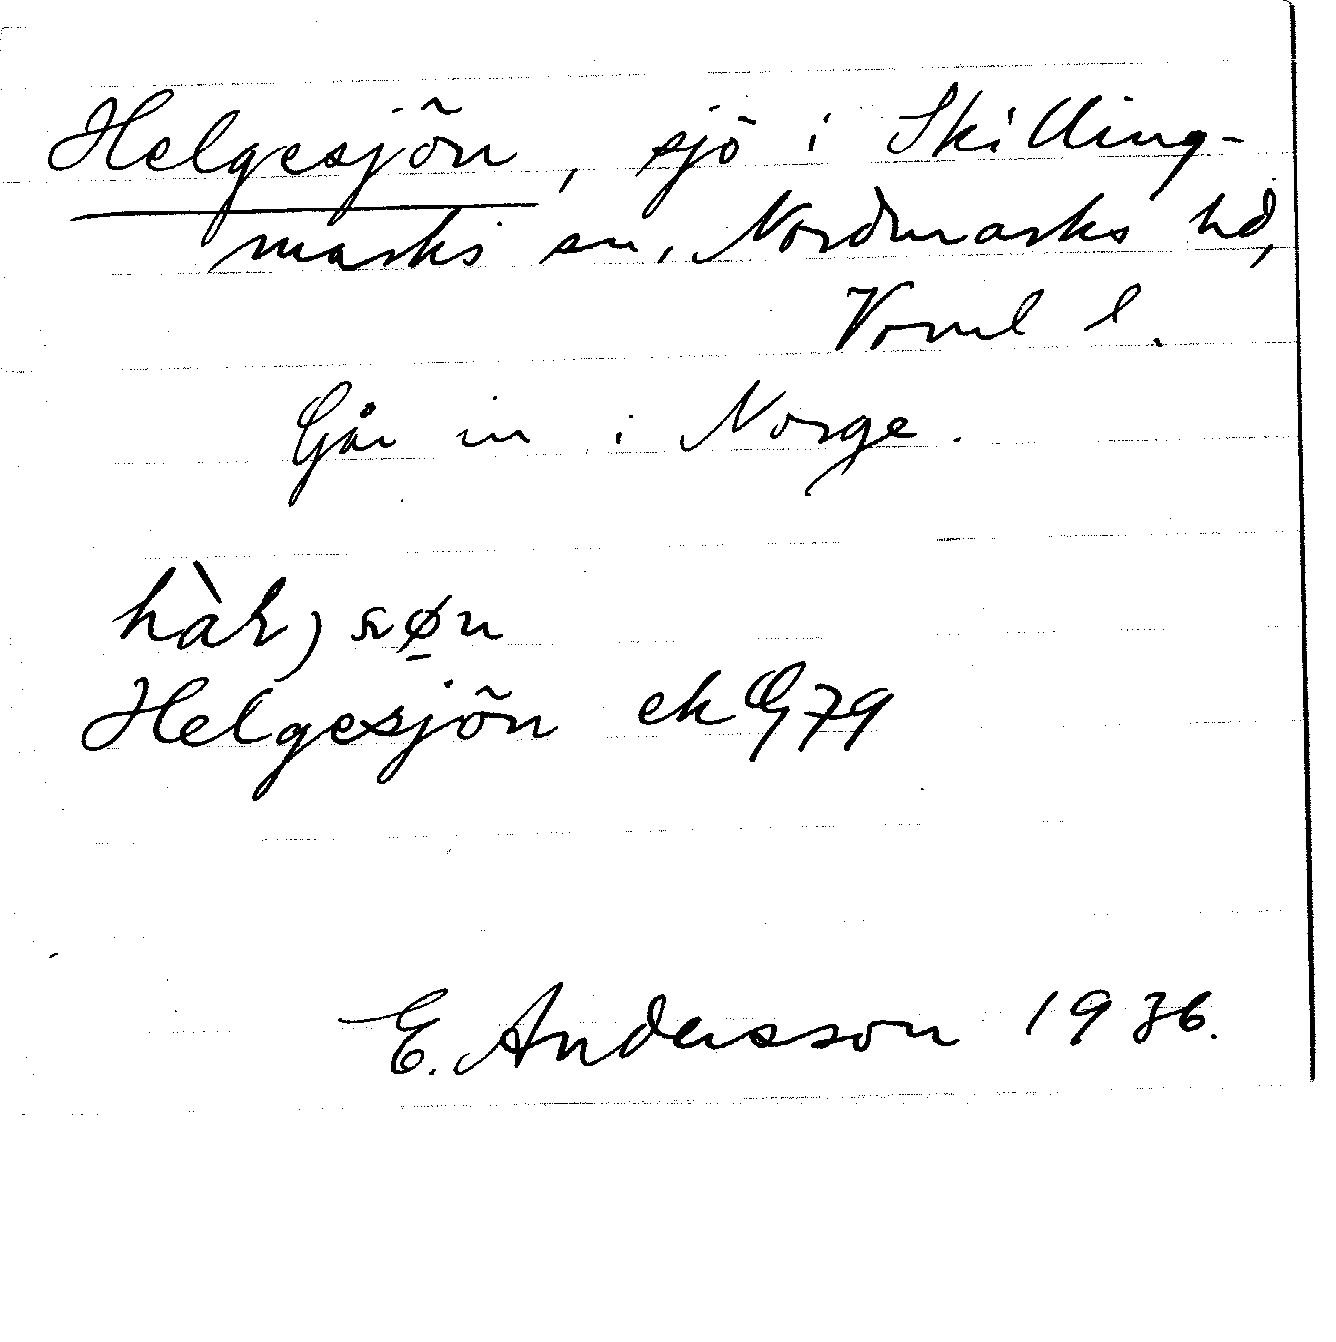 Helgesjön, sjö i Skilling-
marks sn, Nordmarks hd,
Verml l.
Går in i Norge.
søn
Helgesjön ek G 79
E. Andersson 1936.